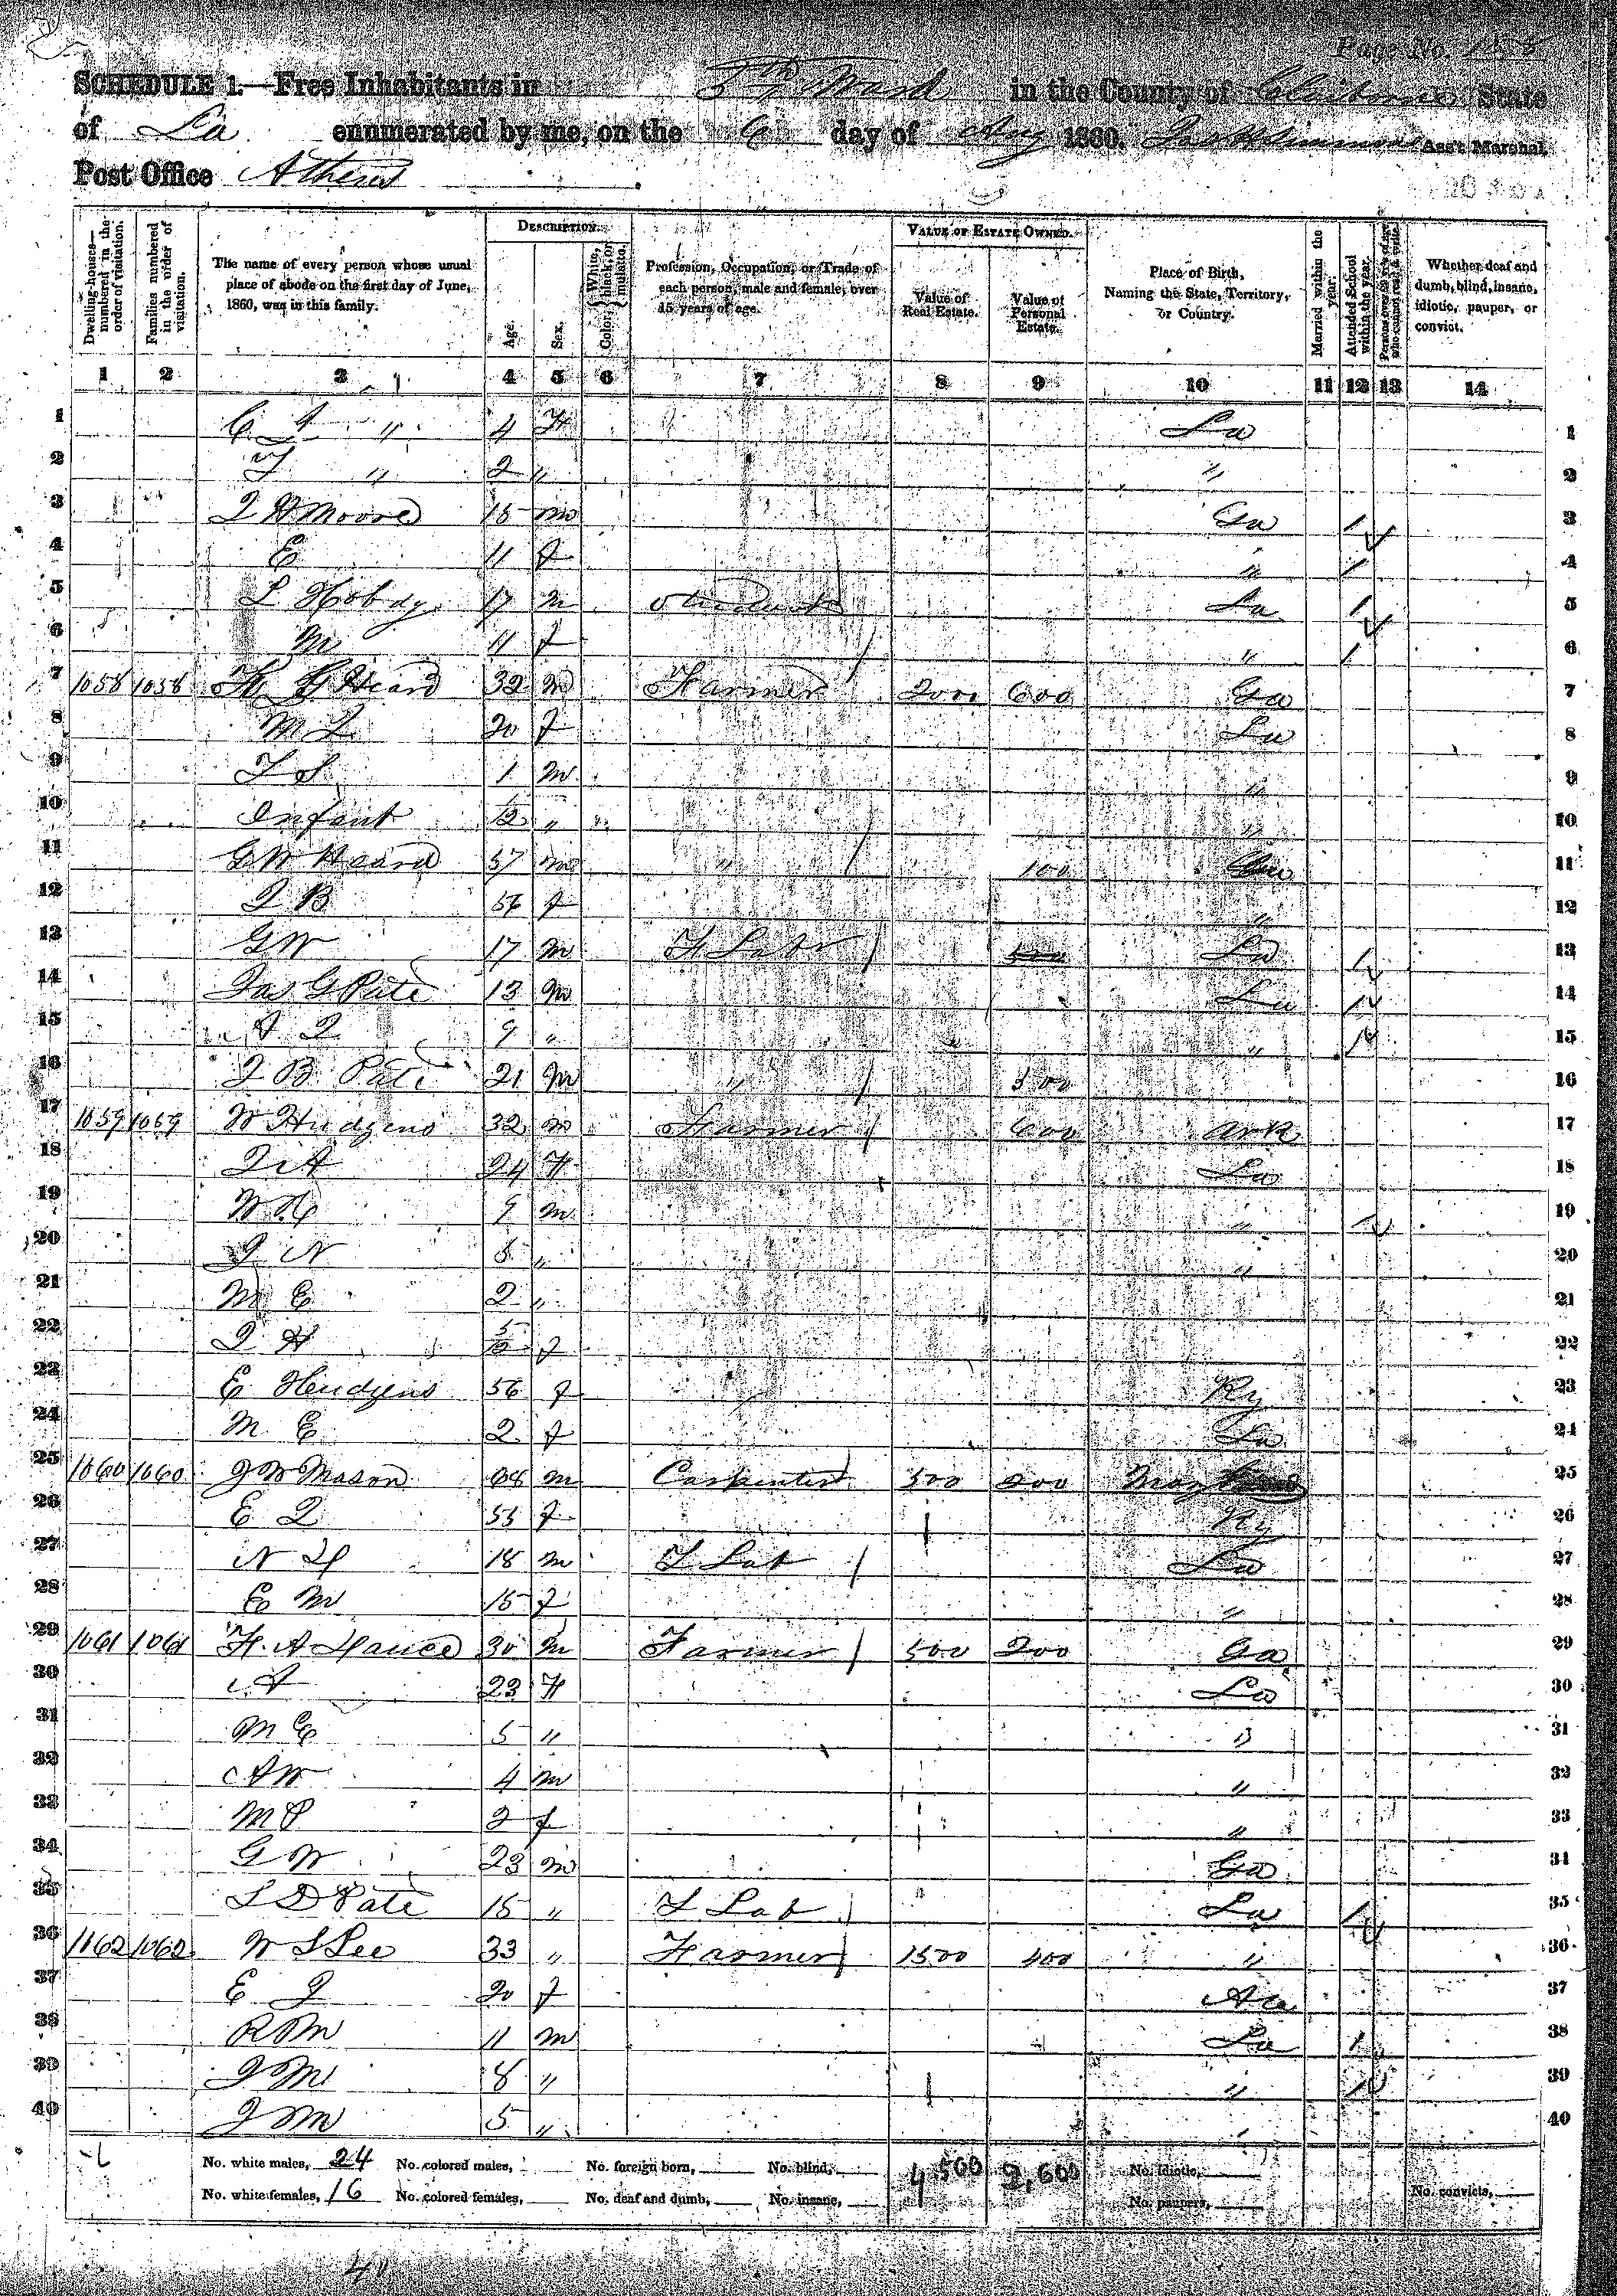 Page No. 155
SCHEDULE 1.—Free Inhabitants in 5th Ward in the County of Claiborne State
of La enumerated by me, on the 6 day of Aug 1860. Ass't Marshal.
Post Office Athens
Dwelling-houses—numbered in the order of visitation.
Families numbered in the order of visitation.
The name of every person whose usual place of abode on the first day of June, 1860, was in this family.
DESCRIPTION.
Age.
Sex.
Color, White, black, or mulatto.
Profession, Occupation, or Trade of each person, male and female, over 15 years of age.
VALUE OF ESTATE OWNED.
Value of Real Estate.
Value of Personal Estate.
Place of Birth, Naming the State, Territory, or Country.
Married within the year.
Attended School within the year.
Persons over 20 y'rs of age who cannot read & write.
Whether deaf and dumb, blind, insane, idiotic, pauper, or convict.
1 2 3 4 5 6 7 8 9 10 11 12 13 14
1 " 4 F La 1
2 " 2 " " 2
3 Moore 15 m Ga / 3
4 E 11 f " / 4
5 L Hobdy 17 m Student La / 5
6 M 11 f " / 6
7 1058 1058 Heard 32 m Farmer 2000 600 Ga 7
8 M J 20 f La 8
9 T S 1 m " 9
10 Infant /12 " " 10
11 G W Heard 57 m " 100 11
12 J B 56 f " 12
13 G W 17 m F Labr La / 13
14 Jas G Pate 13 m La / 14
15 A J 9 " " / 15
16 J B Pate 21 m " 300 16
17 1059 1059 W Hudgens 32 m Farmer 600 Ark 17
18 24 F La 18
19 9 m " / 19
20 J N 5 " " 20
21 M E 2 " 21
22 J H 5/12 f 22
23 E Hudgens 56 f Ky 23
24 M E 2 f La 24
25 1060 1060 J W Mason 68 m Carpenter 500 200 Maryland 25
26 E J 55 f Ky 26
27 18 m F Lab La 27
28 E M 15 f " 28
29 1061 1061 30 m Farmer 500 200 Ga 29
30 A 23 F La 30
31 M E 5 " " 31
32 A W 4 m " 32
33 M P 2 f " 33
34 G W 23 m Ga 34
35 L D Pate 15 " F Lab La / 35
36 1162 1062 W S Lee 33 " Farmer 1500 400 " 36
37 E J 20 f 37
38 R M 11 m La / 38
39 J M 8 " " / 39
40 J M 5 " " 40
No. white males, 24 No. colored males, No. foreign born, No. blind, 4,500 2,600 No. idiotic,
No. white females, 16 No. colored females, No. deaf and dumb, No. insane, No. paupers, No. convicts,
40